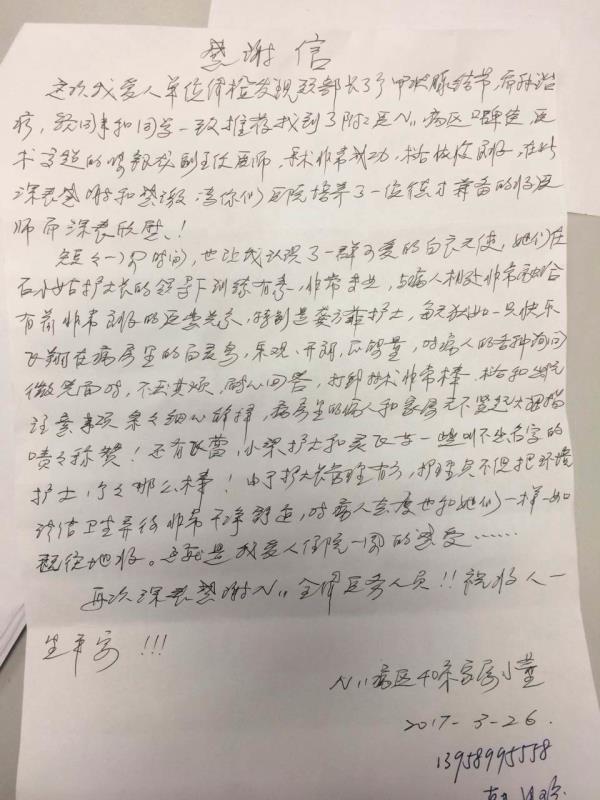 感谢信
这次我爱人单位体检发现颈部长了甲状腺结节,需环治
疗,经同事和同学一致推荐找到了附2医N11病区 医
术高超的 副主任医师,手术非常成功,术后恢复良好,在此
深表感谢和感激,为你们医院培养了一位德才兼备的好医
师而深表欣慰!
短短一周时间,也让我认识了一群可爱的白衣天使,她们在
石小姑护士长的领导下训练有素,非常专业,与病人相处非常融洽
有着非常良好的医患关系,特别是娄方菲护士,每天犹如一只快乐
飞翔在病房里的百灵鸟,乐观、开朗、正能量,对病人的各种询问
微笑面对,不厌其烦,耐心回答,打针技术非常棒,术后和出院
注意事项条条细心解释,病房里的病人和家属无不竖起大拇指
啧啧称赞!还有 蕾,小梁护士和 一些叫不出名字的
护士,个个那么棒!由于护士长管理有方,护理员不但把环境
清洁卫生弄得非常干净舒适,对病人态度也和她们一样一如
既往地好。这就是我爱人住院一周的感受……
再次深表感谢N11全体医务人员!!祝好人一
生平安!!!
N11病区40床家属小董
2017-3-26
13958995558